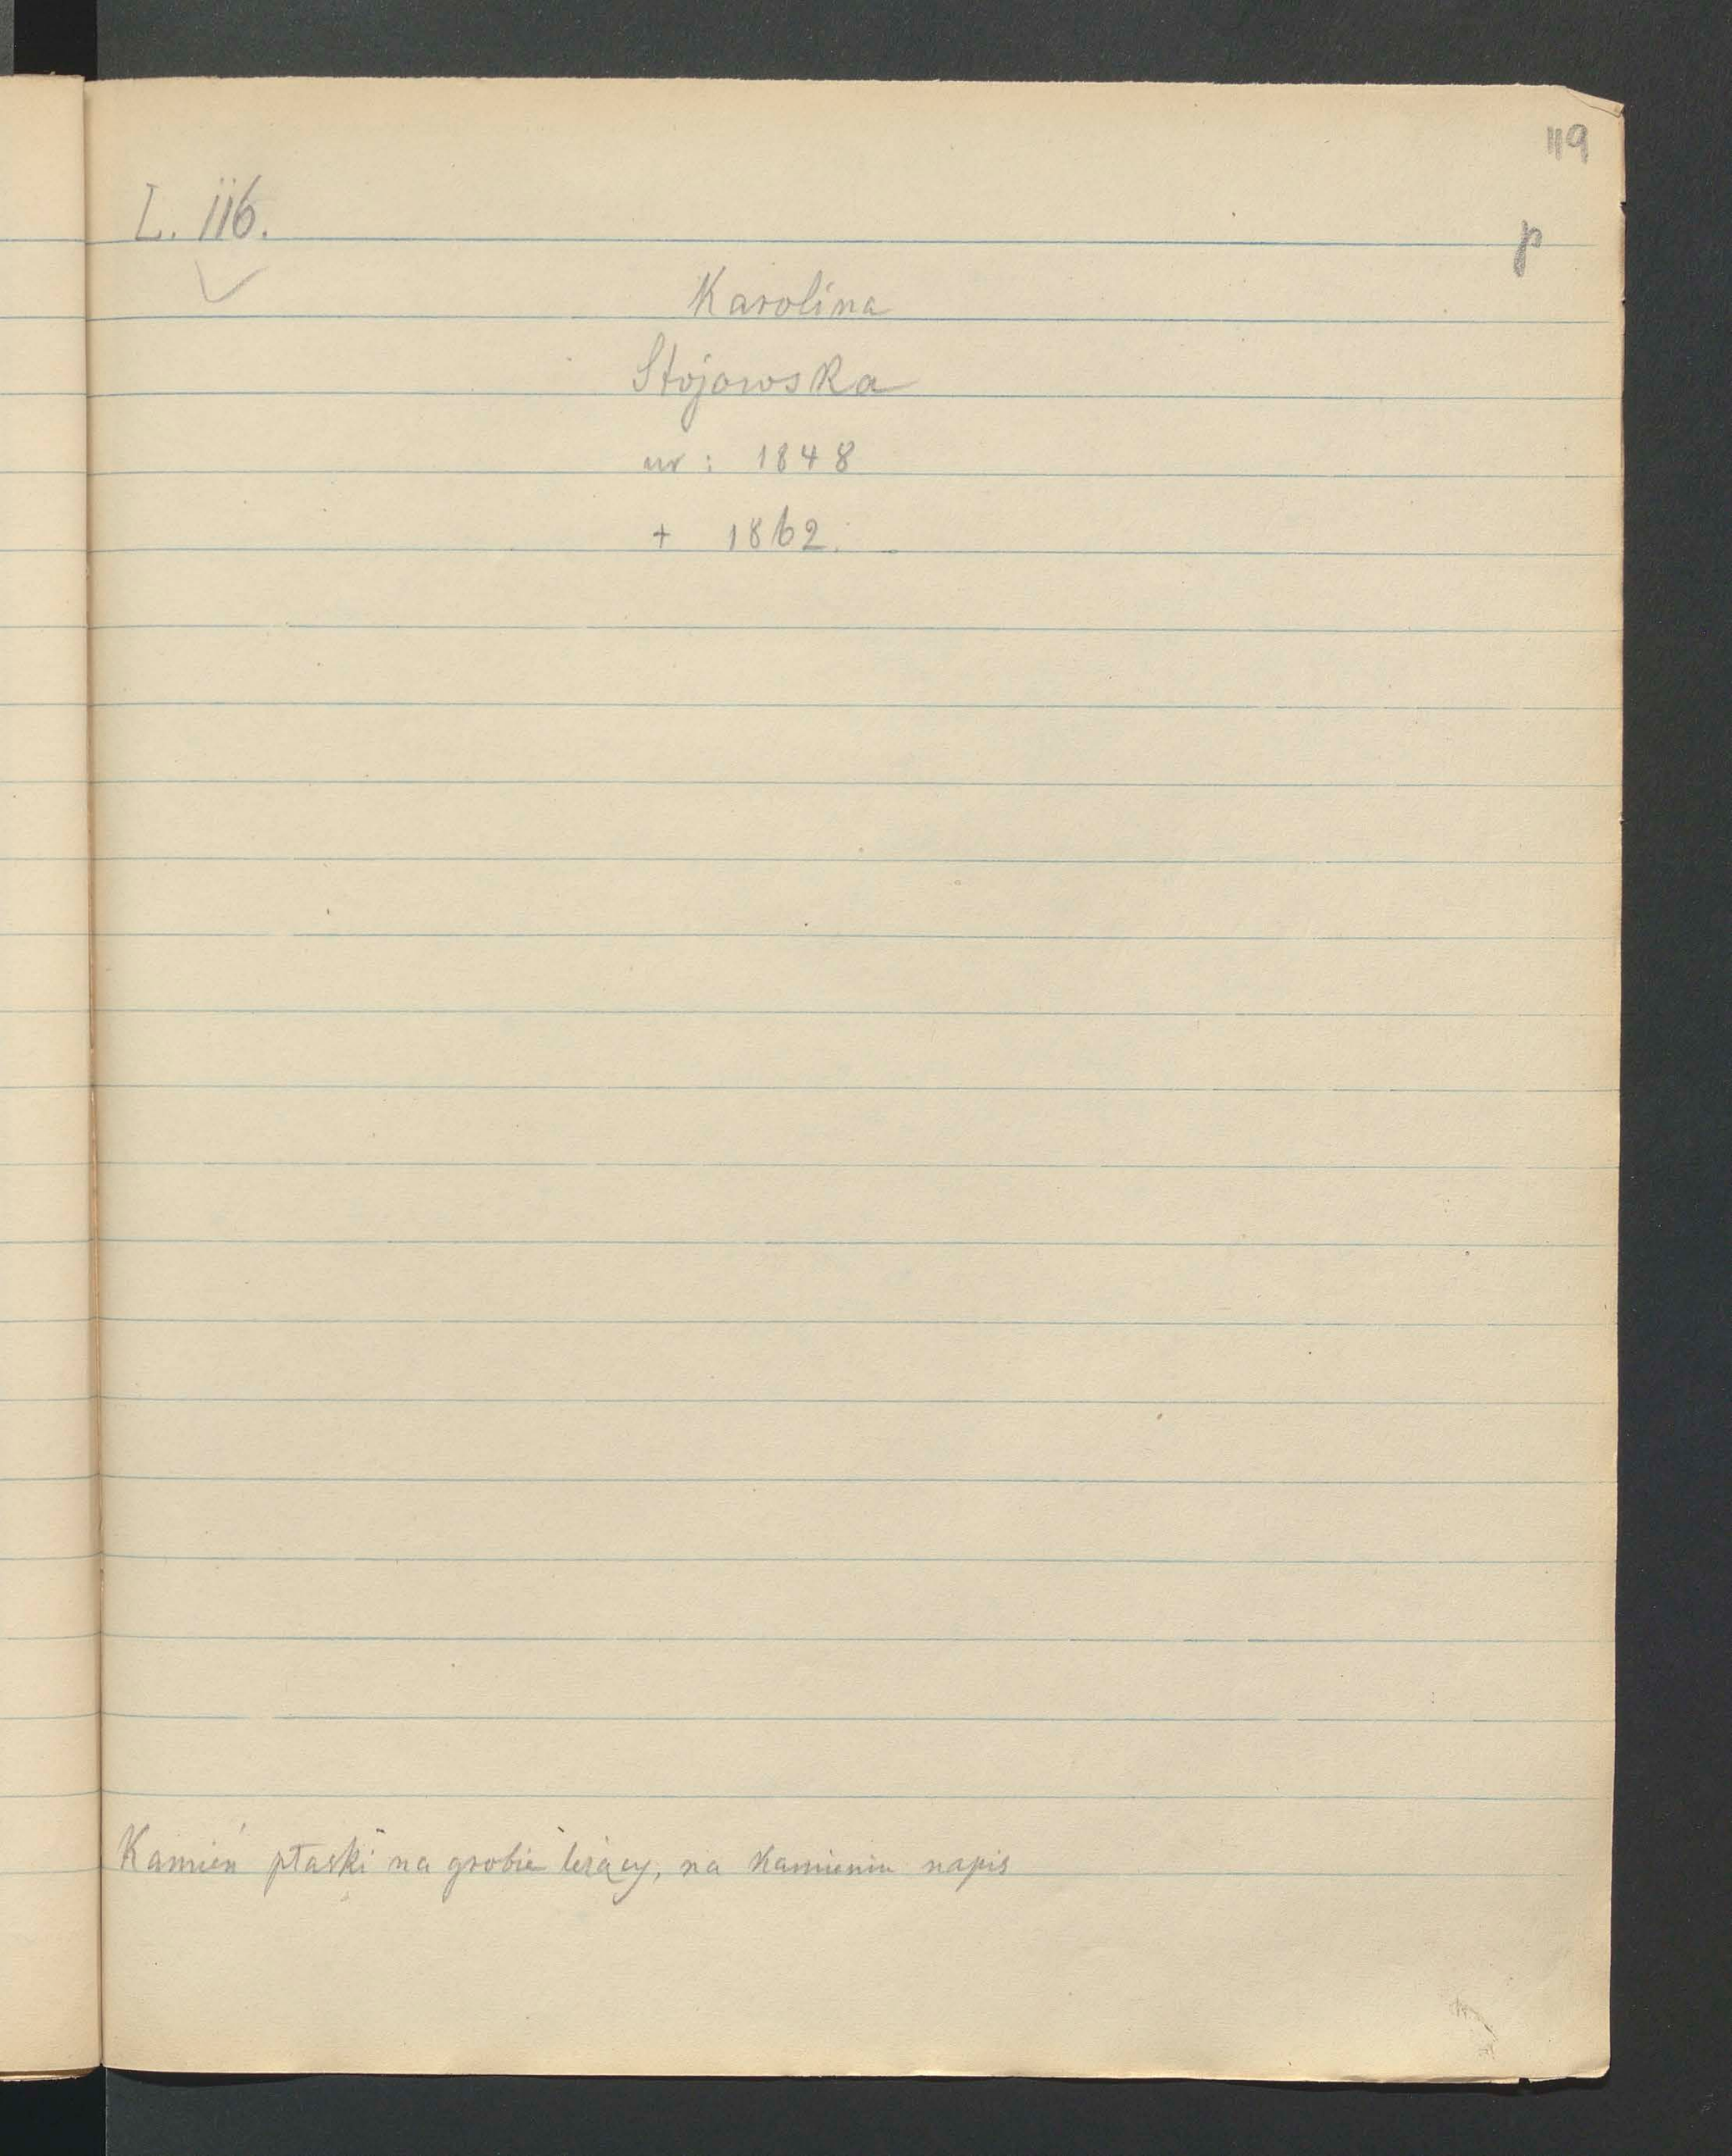 119
L. 116.
p
Karolina
Stojowska
ur : 1848
+ 1862.
Kamień płaski na grobie leżący, na kamieniu napis